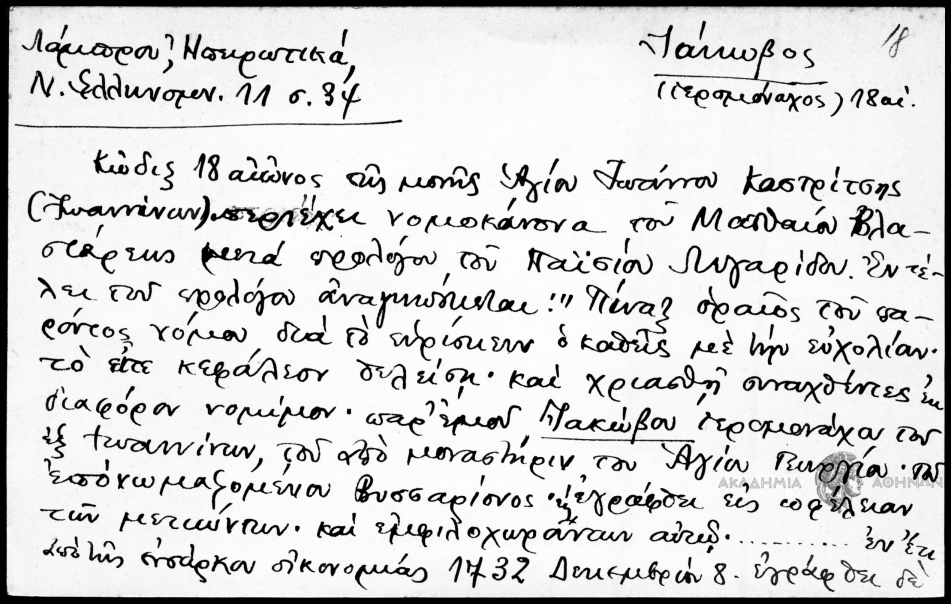 18
Λάμπρου, Ηπειρωτικά,
Ν. Ελληνομν. 11 σ. 34
Ἰάκωβος
(ἱερομόναχος) 18 αἰ.
Κώδιξ 18 αἰῶνος τῆς μονῆς Ἁγίου Ἰωάννου Καστρίτσης
(Ἰωαννίνων) περιέχει νομοκάνονα τοῦ Ματθαίου Βλα-
στάρεως μετά προλόγου τοῦ Παϊσίου Λιγαρίδου. Ἐν τέ-
λει τοῦ προλόγου ἀναγινώσκεται: "Πίναξ ὁραῖος τοῦ πα-
ρόντος νόμου διά τὸ εὑρίσκειν ὁ καθεῖς μὲ τὴν εὐχολίαν·
τὸ εἴτε κεφάλεον θελείση· καὶ χριασθῆ συναχθέντες ἐκ
διαφόρον νομίμον· παρ' ἐμοῦ Ἰακώβου ἱερομονάχου τοῦ
ἐξ Ἰωαννίνων, τοῦ ἀπὸ μοναστήριν τοῦ Ἁγίου Γεωργίου· τοῦ
ἐπόνωμαζομένου Βυσσαρίονος· ἐγράφθει εἰς ὠφέλειαν
τῶν μετιώντων· καὶ ἐμφιλοχωρούντων αὐτῷ· ......... ἐν ἔτει
ἀπὸ τῆς ἐνσάρκου οἰκονομίας 1732 Δεκεμβρίου 8. ἐγράφθει δὲ
ΑΚΑΔΗΜΙΑ ΑΘΗΝΩΝ